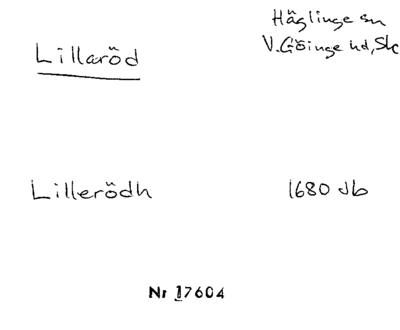 Lillaröd
Häglinge sn
V. Göinge hd, Sk
Lillerödh
1680 Jb
Nr 17604